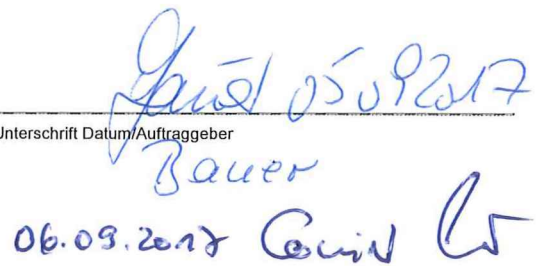 05 09 2017
Unterschrift Datum/Auftraggeber
Bauer
06.09.2017